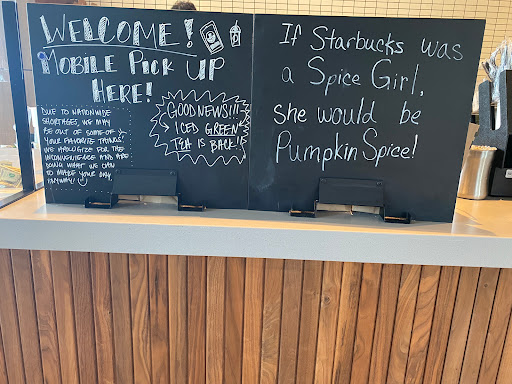 WELCOME!
MOBILE PICK UP
HERE!
DUE TO NATIONWIDE
SHORTAGES, WE MAY
BE OUT OF SOME OF
YOUR FAVORITE THINGS!
WE APOLOGIZE FOR THE
INCONVENIENCE AND ARE
DOING WHAT WE CAN
TO MAKE YOUR DAY,
ANYWAY!
GOOD NEWS!!!
ICED GREEN
TEA IS BACK!!
If Starbucks was
a Spice Girl,
she would be
Pumpkin Spice!